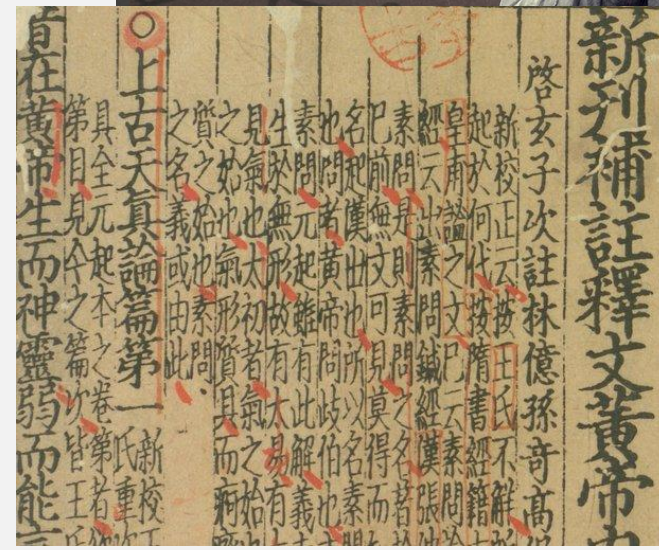 新刋補註釋文黃帝
啓玄子次註林億孫奇高
新校正云按王氏不解
起於何代按隋書經籍
皇甫謐之文已云素問論
經云出素問鍼經漢張
素問是則素問之名著於
已前無文可見莫得而
名起漢世也所以名素
也問者黃帝問歧伯也
素問元起雖有此解義
生於無形故有太易有
見氣也太初者氣之始
之始也氣形質具而痾
質之始也素問
之名義或由此
上古天真論篇第一
新校
氏重
具全元起本之卷第者欲
第目見今之篇次皆王
昔在黃帝生而神靈弱而能